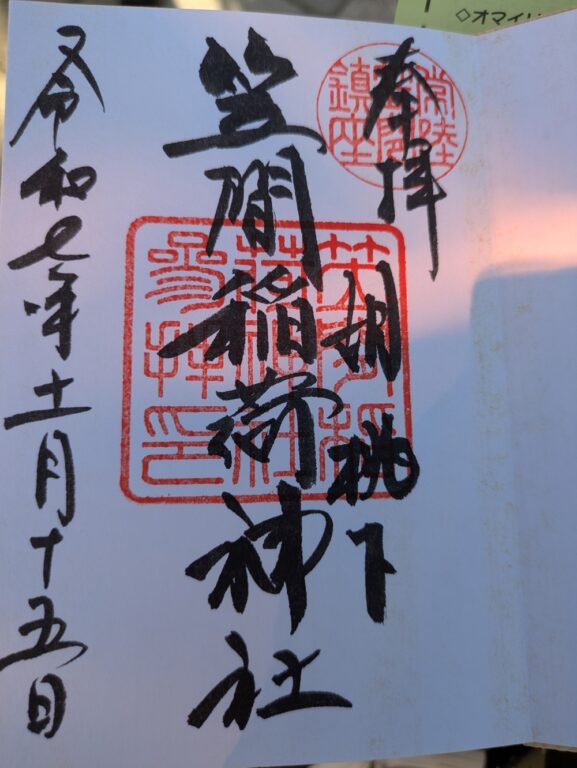 ◇オマイ
奉拝
常陸
鎮座
胡桃下
笠間稲荷神社
笠間稲
荷神社
参拝印
令和七年十一月十五日